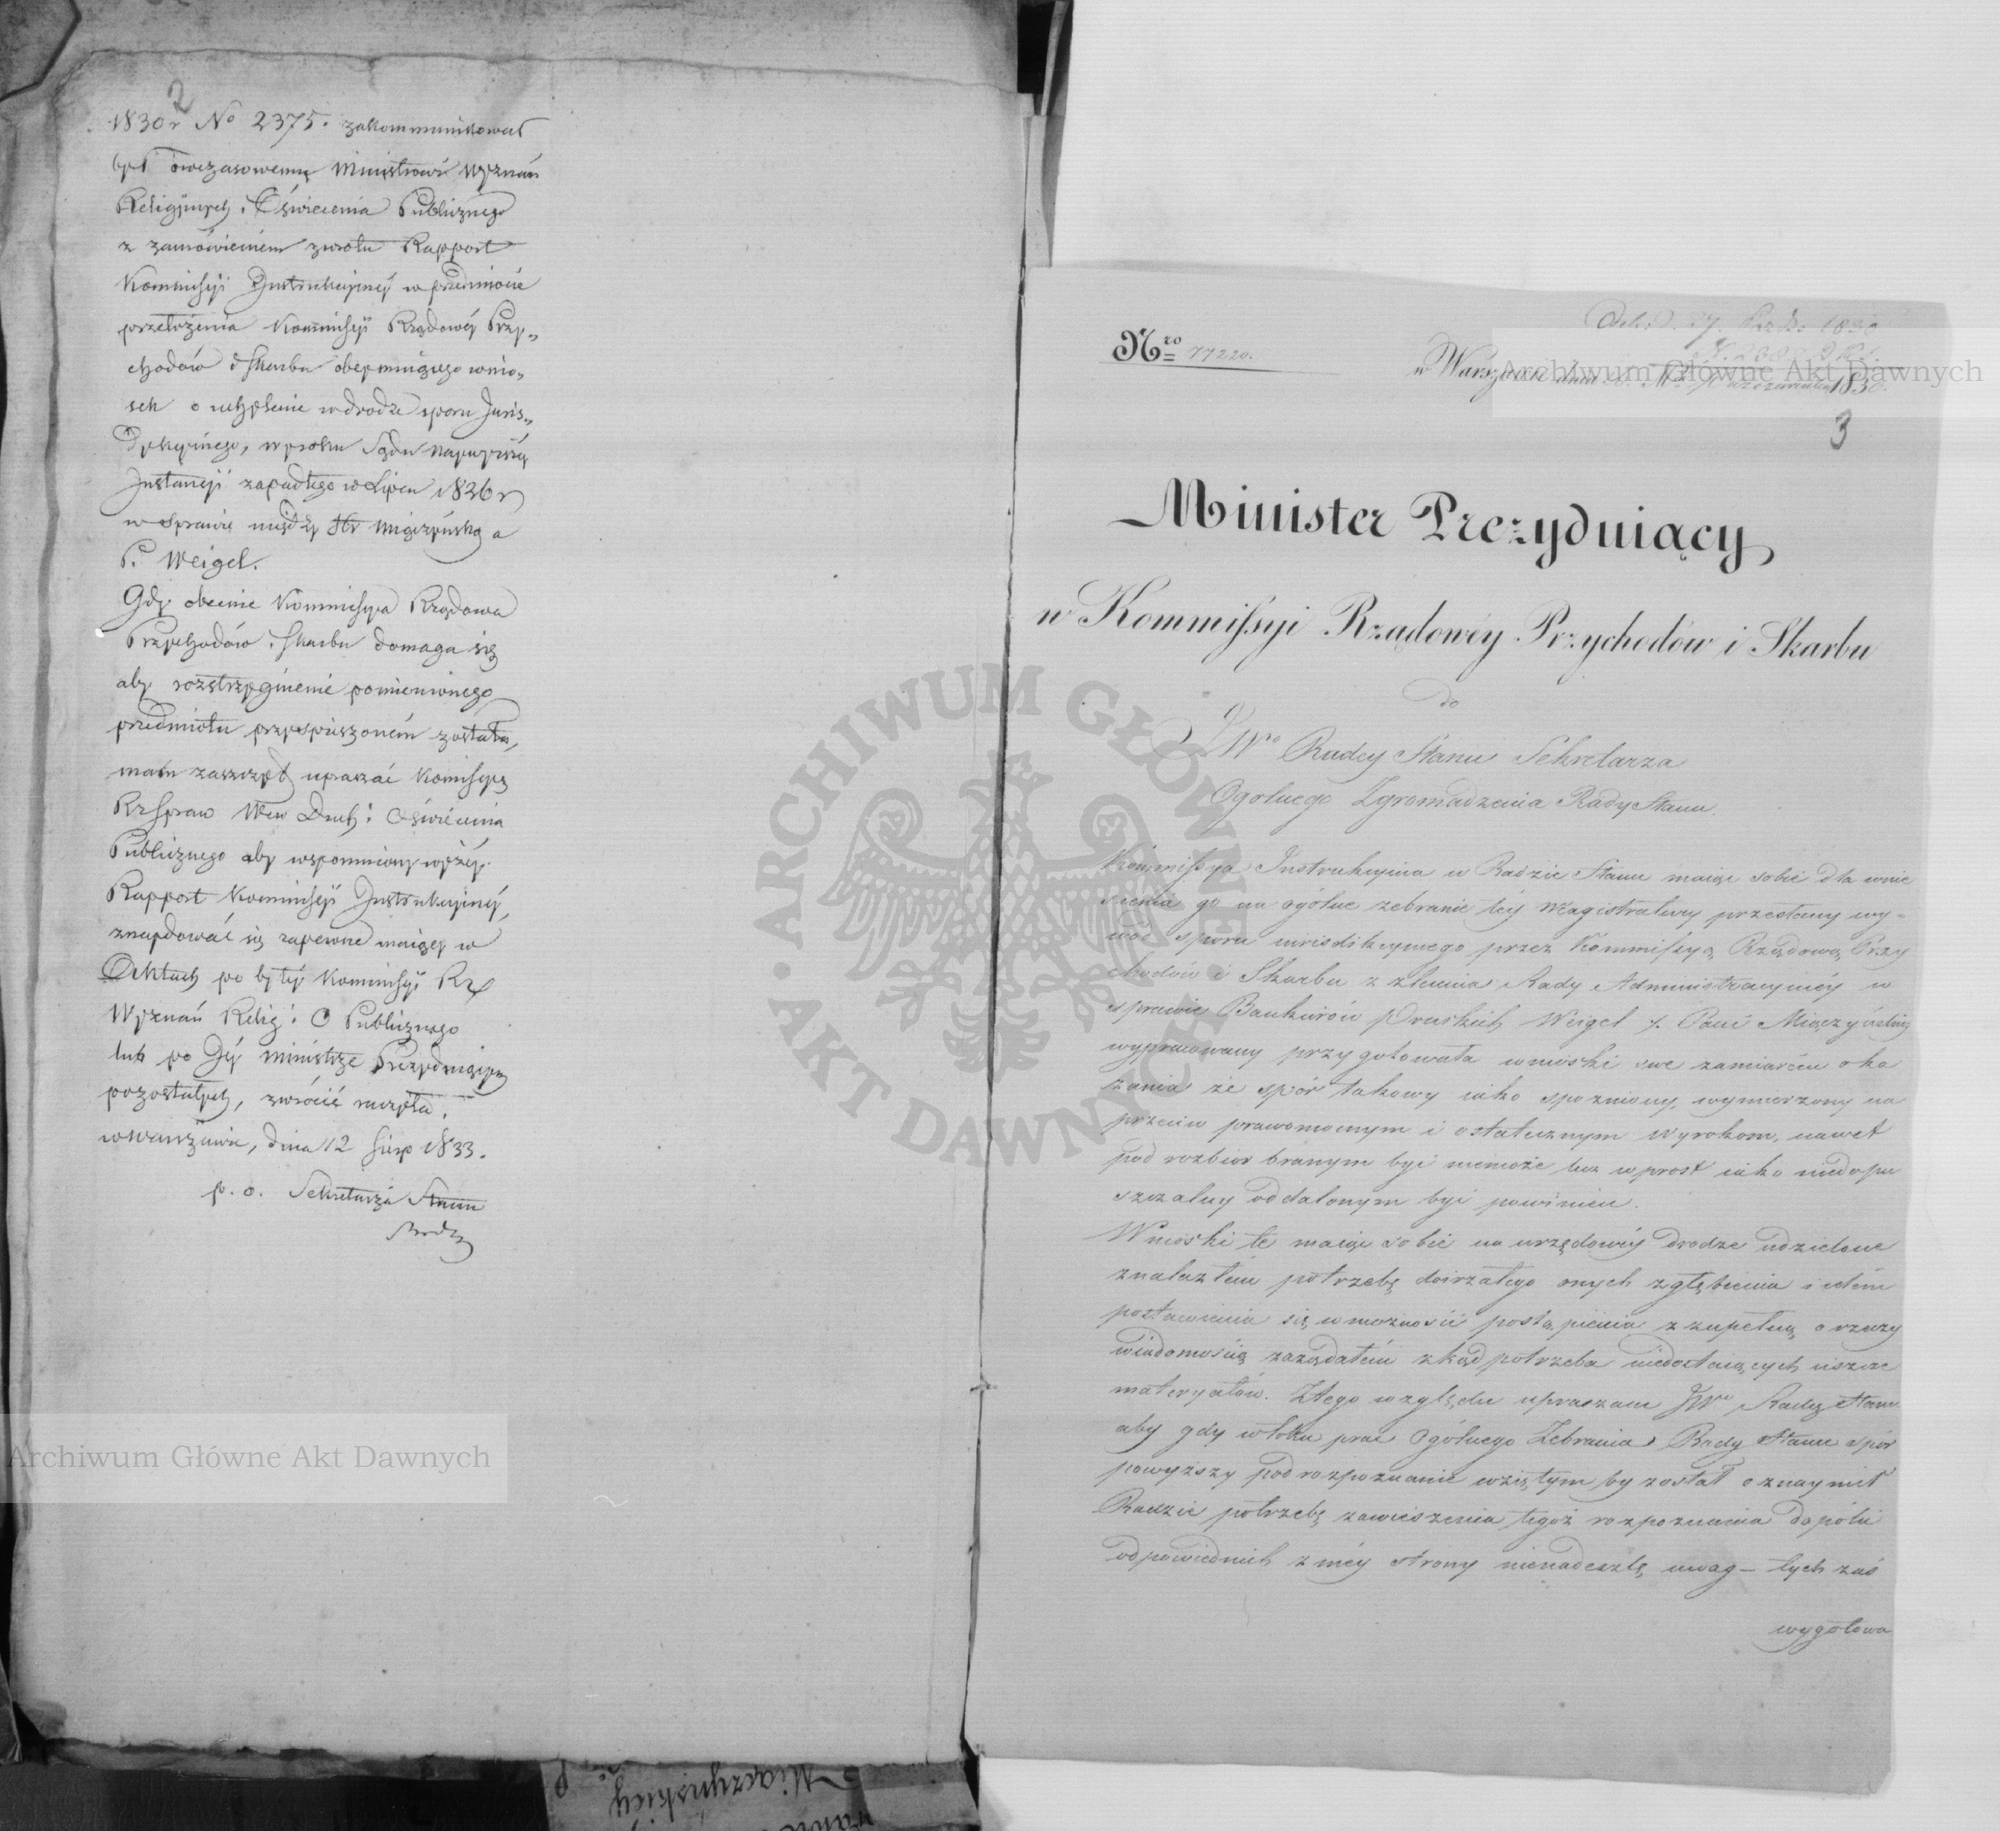 2
1830 r No 2375. zakommunikował
był ówczasowemu Ministrowi Wyznań
Religijnych i Oświecenia Publicznego
z zamówieniem zwrotu Rapport
Kommissyi Instrukcyjnej w przedmiocie
przełożenia Kommissyi Rządowej Przy-
chodów i Skarbu obejmującego wnio-
sek o uchylenie w drodze sporu Juris-
dykcyjnego, wyroku Sądu Najwyższej
Instancyi zapadłego w Lipcu 1826 r
w sprawie między Hr Miączyńską a
P. Weigel.
Gdy obecnie Kommissya Rządowa
Przychodów i Skarbu domaga się
aby rozstrzygnienie pomienionego
przedmiotu przyspieszonem zostało,
mam zaszczyt upraszać Komissyę
Rz Spraw Wew Duch: i Oświecenia
Publicznego aby wspomniony wyżej
Rapport Kommissyi Instrukcyjnej,
znajdować się zapewne mający w
Aktach po byłej Kommissyi Rz
Wyznań Relig: i O Publicznego
lub po Jej Ministrze Prezydującym
pozostałych, zwrócić raczyła.
w Warszawie, dnia 12 Sierp 1833.
p. o. Sekretarza Stanu
Nro 77220.
w Warszawie dnia 1830.
3
Minister Prezydujący
w Kommissyi Rządowéy Przychodów i Skarbu
do
JWo Radcy Stanu Sekretarza
Ogólnego Zgromadzenia Rady Stanu.
Kommissya Instrukcyina w Radzie Stanu maiąc sobie dla wnie
sienia go na ogólne zebranie téy Magistratury przesłany wy-
wód sporu iurisdikcyinego przez Kommissyą Rządową Przy
chodów i Skarbu z zlecenia Rady Administracyinéy w
sprawie Bankierów Pruskich Weigel y. Pani Miączyńskiéy
wypracowany przygotowała wnioski swe zamiarem oka
zania że spór takowy iako spozniony, wymierzony na
przeciw prawomocnym i ostatecznym wyrokom, nawet
pod rozbior branym być niemoże lecz wprost iako niedopu
szczalny oddalonym być powinien.
Wnioski te maiąc sobie na urzędowéy drodze udzielone
znalazłem potrzebę doirzałego onych zgłębienia i celem
postawienia się w możności postąpienia z zupełną o rzeczy
wiadomością zażądałem zkąd potrzeba niedostaiących ieszcze
materyałów. Ztego względu upraszam JWo Radcę Stanu
aby gdy w toku prac Ogólnego Zebrania Rady Stanu spór
powyższy pod rozpoznanie wziętym by został oznaymił
Radzie potrzebę zawieszenia tegoż rozpoznania dopóki
odpowiednich z méy strony nienadeszlę uwag – tych zaś
wygotowa
Miączyńskiéy
ARCHIWUM GŁÓWNE AKT DAWNYCH
Archiwum Główne Akt Dawnych
Archiwum Główne Akt Dawnych